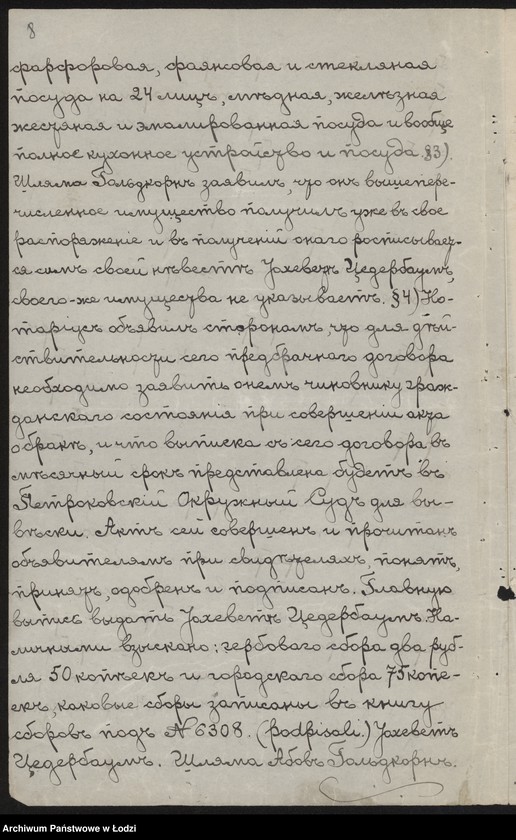 8
фарфоровая, фаянсовая и стекляная
посуда на 24 лицъ, мѣдная, желѣзная
жестяная и эмалированная посуда и вообще
полное кухонное устройство и посуда. §3).
Шляма Гольдкорнъ заявилъ, что онъ вышепере-
численное имущество получилъ уже въ свое
распоряженіе и въ полученіи онаго росписывает-
ся симъ своей невѣстѣ Јохеветъ Цедербаумъ,
своего-же имущества не указываетъ. §4) Но-
таріусъ объявилъ сторонамъ, что для дѣй-
ствительности сего предбрачнаго договора
необходимо заявить онемъ чиновнику граж-
данскаго состоянія при совершеніи акта
о бракѣ, и что выписка съ сего договора въ
мѣсячный срокъ представлена будетъ въ
Петроковскій Окружный Судъ для вы-
вѣски. Актъ сей совершенъ и прочитанъ
объявителямъ при свидѣтеляхъ, понятъ,
принятъ, одобренъ и подписанъ. Главную
выпись выдать Јохеветъ Цедербаумъ. На-
личными взыскано: гербоваго сбора два руб-
ля 50 копѣекъ и городскаго сбора 75 копе-
екъ, каковые сборы записаны въ книгу
сборовъ подъ № 6308. (podpisali.) Јохеветъ
Цедербаумъ. Шляма Абовъ Гольдкорнъ.
Archiwum Państwowe w Łodzi